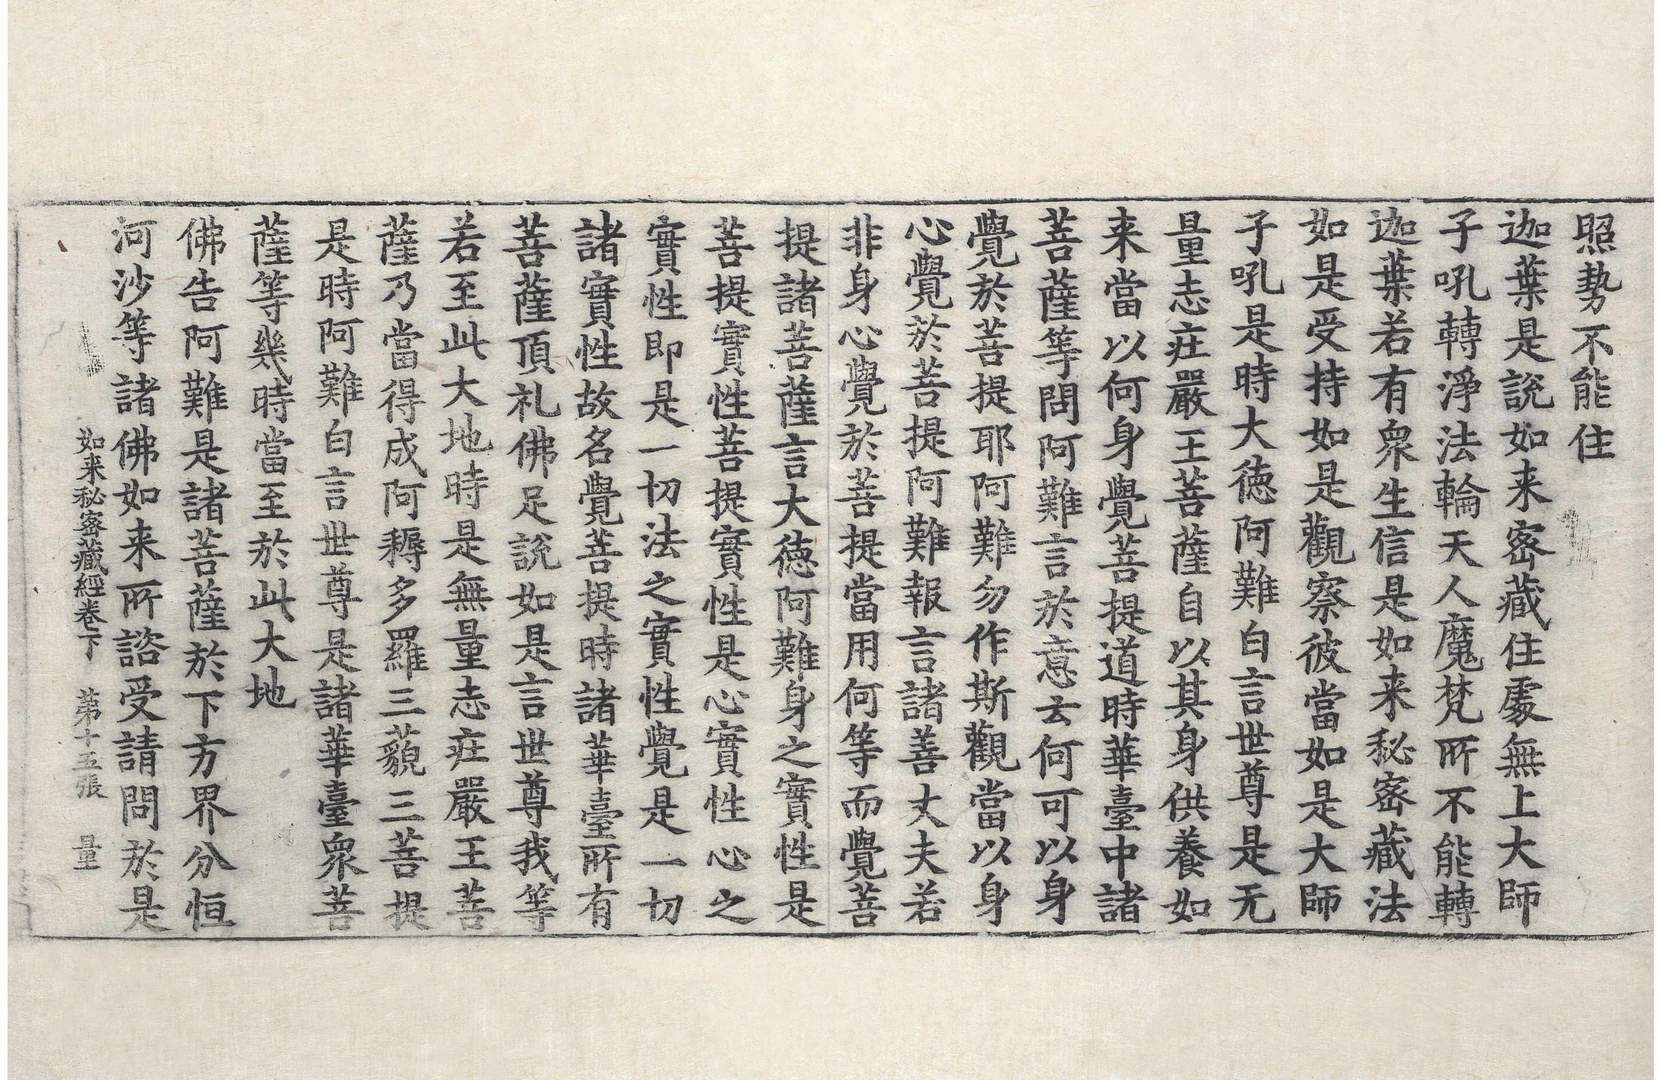 照勢不能住
迦葉是說如来密藏住處無上大師
子吼轉淨法輪天人魔梵所不能轉
迦葉若有衆生信是如来秘密藏法
如是受持如是觀察彼當如是大師
子吼是時大德阿難白言世尊是无
量志疘嚴王菩薩自以其身供養如
来當以何身覺菩提道時華臺中諸
菩薩等問阿難言於意云何可以身
覺於菩提耶阿難勿作斯觀當以身
心覺於菩提阿難報言諸善丈夫若
非身心覺於菩提當用何等而覺菩
提諸菩薩言大德阿難身之實性是
菩提實性菩提實性是心實性心之
實性即是一切法之實性覺是一切
諸實性故名覺菩提時諸華臺所有
菩薩頂礼佛足說如是言世尊我等
若至此大地時是無量志疘嚴王菩
薩乃當得成阿耨多羅三藐三菩提
是時阿難白言世尊是諸華臺衆菩
薩等幾時當至於此大地
佛告阿難是諸菩薩於下方界分恒
河沙等諸佛如来所諮受請問於是
如来秘密藏經卷下 第十五張 量